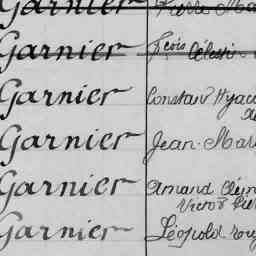 Garnier
Garnier fcois Célestin
Garnier Constant Hyac
Garnier Jean-Mar
Garnier Armand Clém
Victor
Garnier Léopold